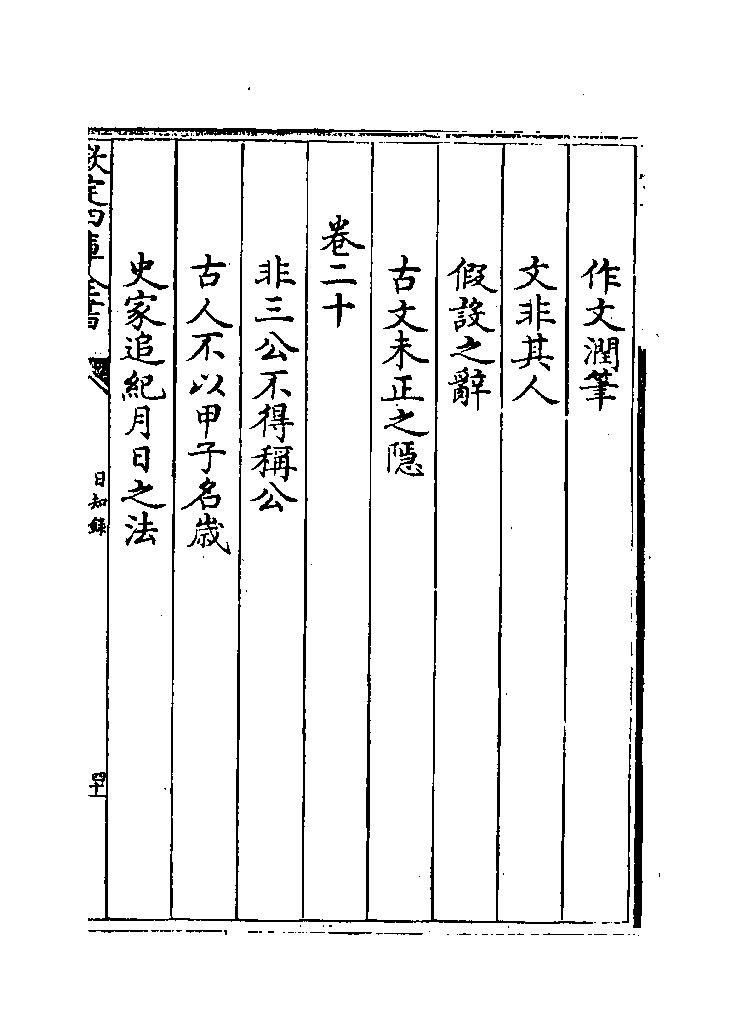 作文潤筆
文非其人
假設之辭
古文未正之隱
卷二十
非三公不得稱公
古人不以甲子名歳
史家追紀月日之法
欽定四庫全書
日知錄
四十一